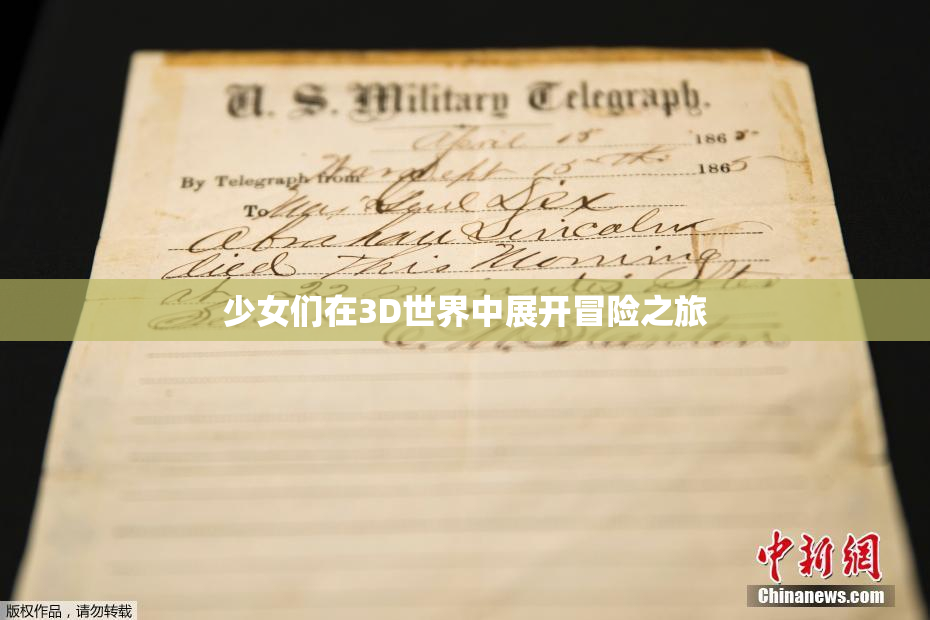 U. S. Military Telegraph.
April 15 1865
By Telegraph from War Dept 15th 1865
To Maj Genl Dix
Abraham Lincoln
died This Morning
at 22 minutes after
少女们在3D世界中展开冒险之旅
中新网
Chinanews.com
版权作品，请勿转载